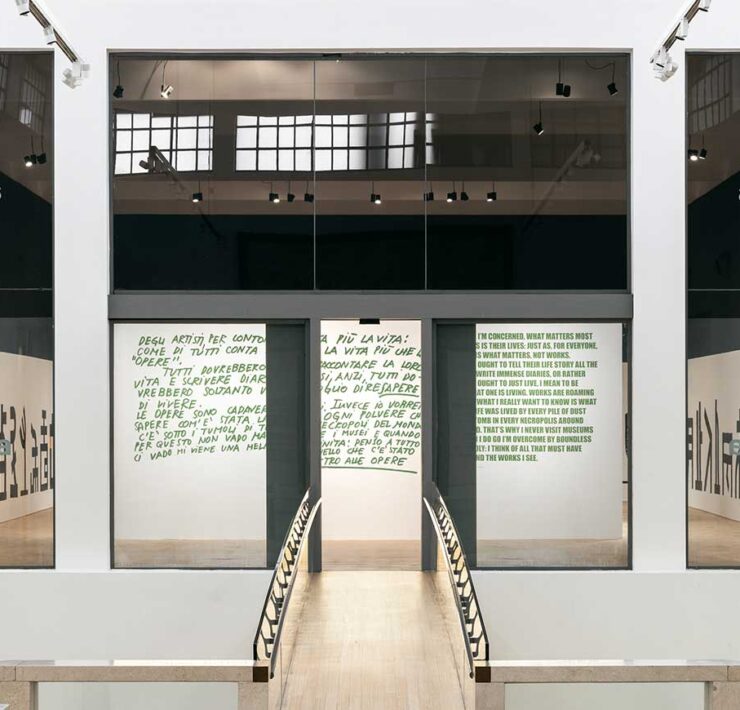 DEGLI ARTISTI PER CONTO PIÙ LA VITA:
COME DI TUTTI CONTA LA VITA PIÙ CHE
"OPERE".
TUTTI DOVREBBERO RACCONTARE LA LORO
VITA E SCRIVERE DIAR SÌ, ANZI, TUTTI DO-
VREBBERO SOLTANTO V OGLIO DI RESAPERE
DI VIVERE.
LE OPERE SONO CADAVER . INVECE IO VORRE
SAPERE COM'È STATA LA OGNI POLVERE CH
C'È SOTTO I TUMOLI DI T ECROPOLI DEL MOND
PER QUESTO NON VADO MA I MUSEI E QUANDO
CI VADO MI VIENE UNA MELA NITÀ: PENSO A TUTTO
ELLO CHE C'È STATO
TRO ALLE OPERE
I'M CONCERNED, WHAT MATTERS MOST
S IS THEIR LIVES: JUST AS, FOR EVERYONE,
IS WHAT MATTERS, NOT WORKS.
OUGHT TO TELL THEIR LIFE STORY ALL THE
WRITE IMMENSE DIARIES, OR RATHER
OUGHT TO JUST LIVE, I MEAN TO BE
AT ONE IS LIVING. WORKS ARE ROAMING
WHAT I REALLY WANT TO KNOW IS WHAT
IFE WAS LIVED BY EVERY PILE OF DUST
OMB IN EVERY NECROPOLIS AROUND
D. THAT'S WHY I NEVER VISIT MUSEUMS
I DO GO I'M OVERCOME BY BOUNDLESS
OLY: I THINK OF ALL THAT MUST HAVE
ND THE WORKS I SEE.